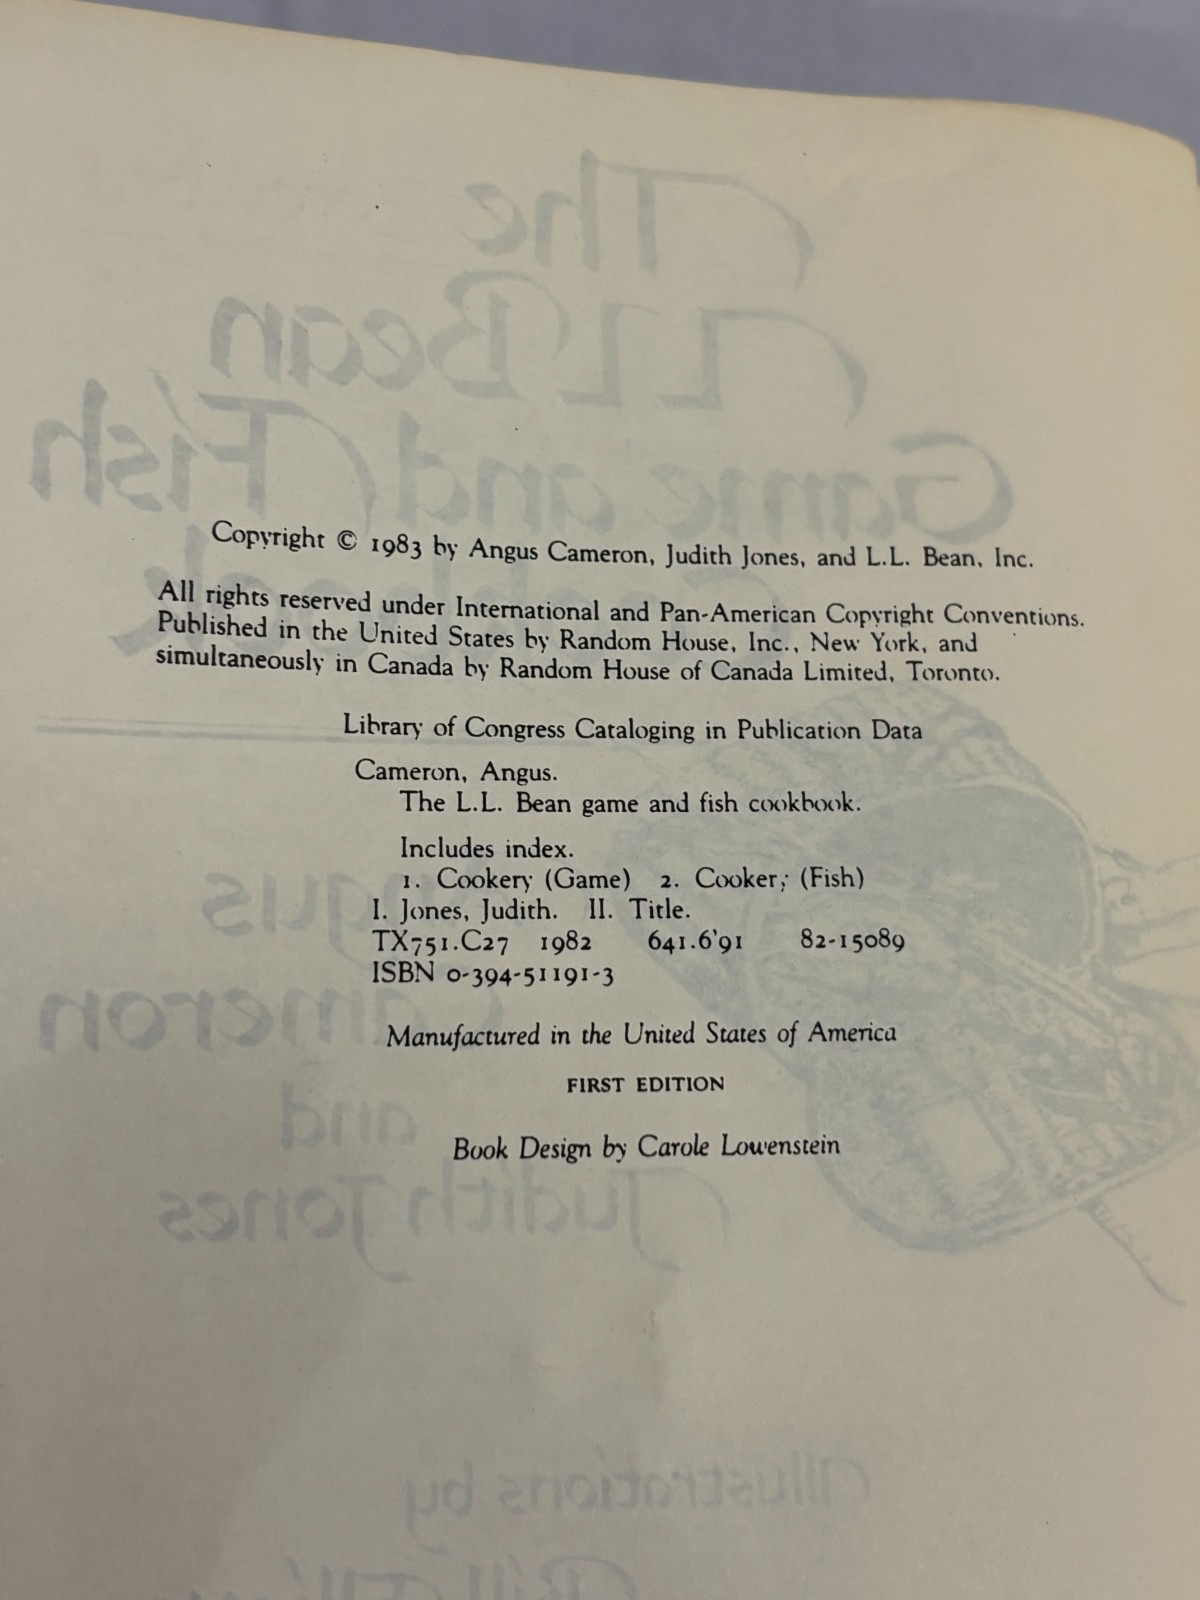 The
L.L. Bean
Game and Fish
Copyright © 1983 by Angus Cameron, Judith Jones, and L.L. Bean, Inc.
All rights reserved under International and Pan-American Copyright Conventions.
Published in the United States by Random House, Inc., New York, and
simultaneously in Canada by Random House of Canada Limited, Toronto.
Library of Congress Cataloging in Publication Data
Cameron, Angus.
The L.L. Bean game and fish cookbook.
Includes index.
1. Cookery (Game) 2. Cooker; (Fish)
I. Jones, Judith. II. Title.
TX751.C27 1982 641.6'91 82-15089
ISBN 0-394-51191-3
Manufactured in the United States of America
FIRST EDITION
Book Design by Carole Lowenstein
Angus
Cameron
and
Judith Jones
Illustrations by